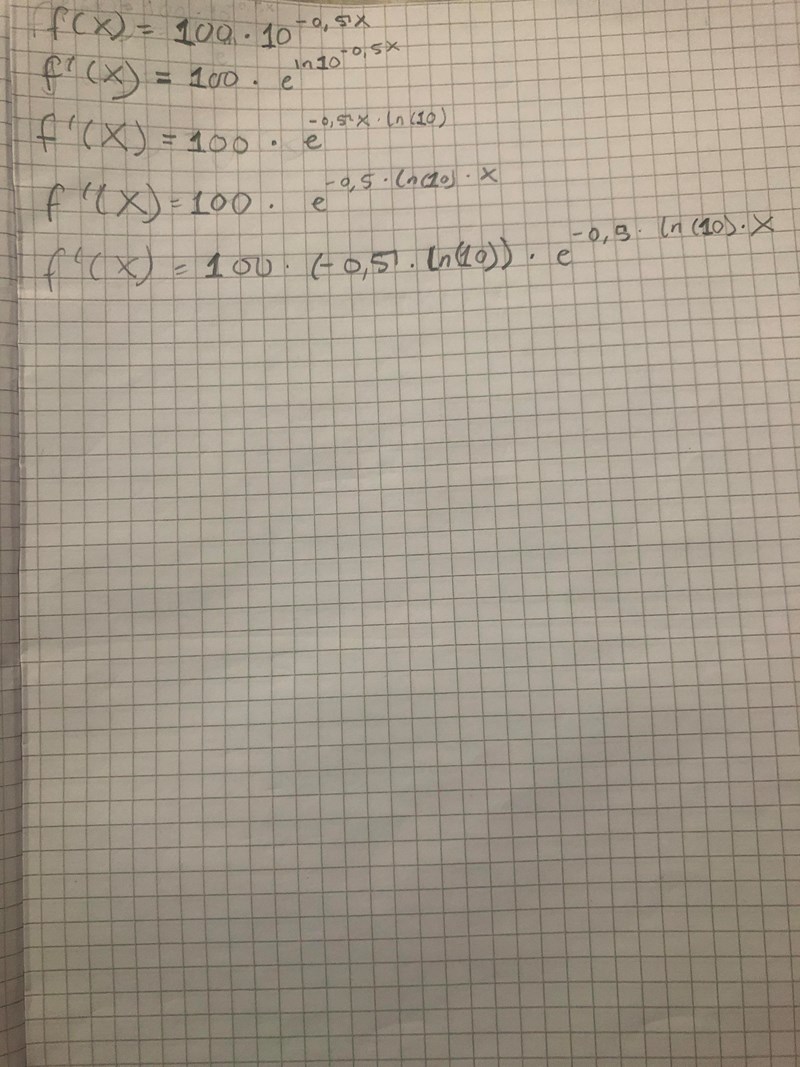 f(x) = 100 · 10^-0,5x
f'(x) = 100 · e^ln10^-0,5x
f'(x) = 100 · e^-0,5x · ln(10)
f'(x) = 100 · e^-0,5 · ln(10) · x
f'(x) = 100 · (-0,5 · ln(10)) · e^-0,5 · ln(10) · x